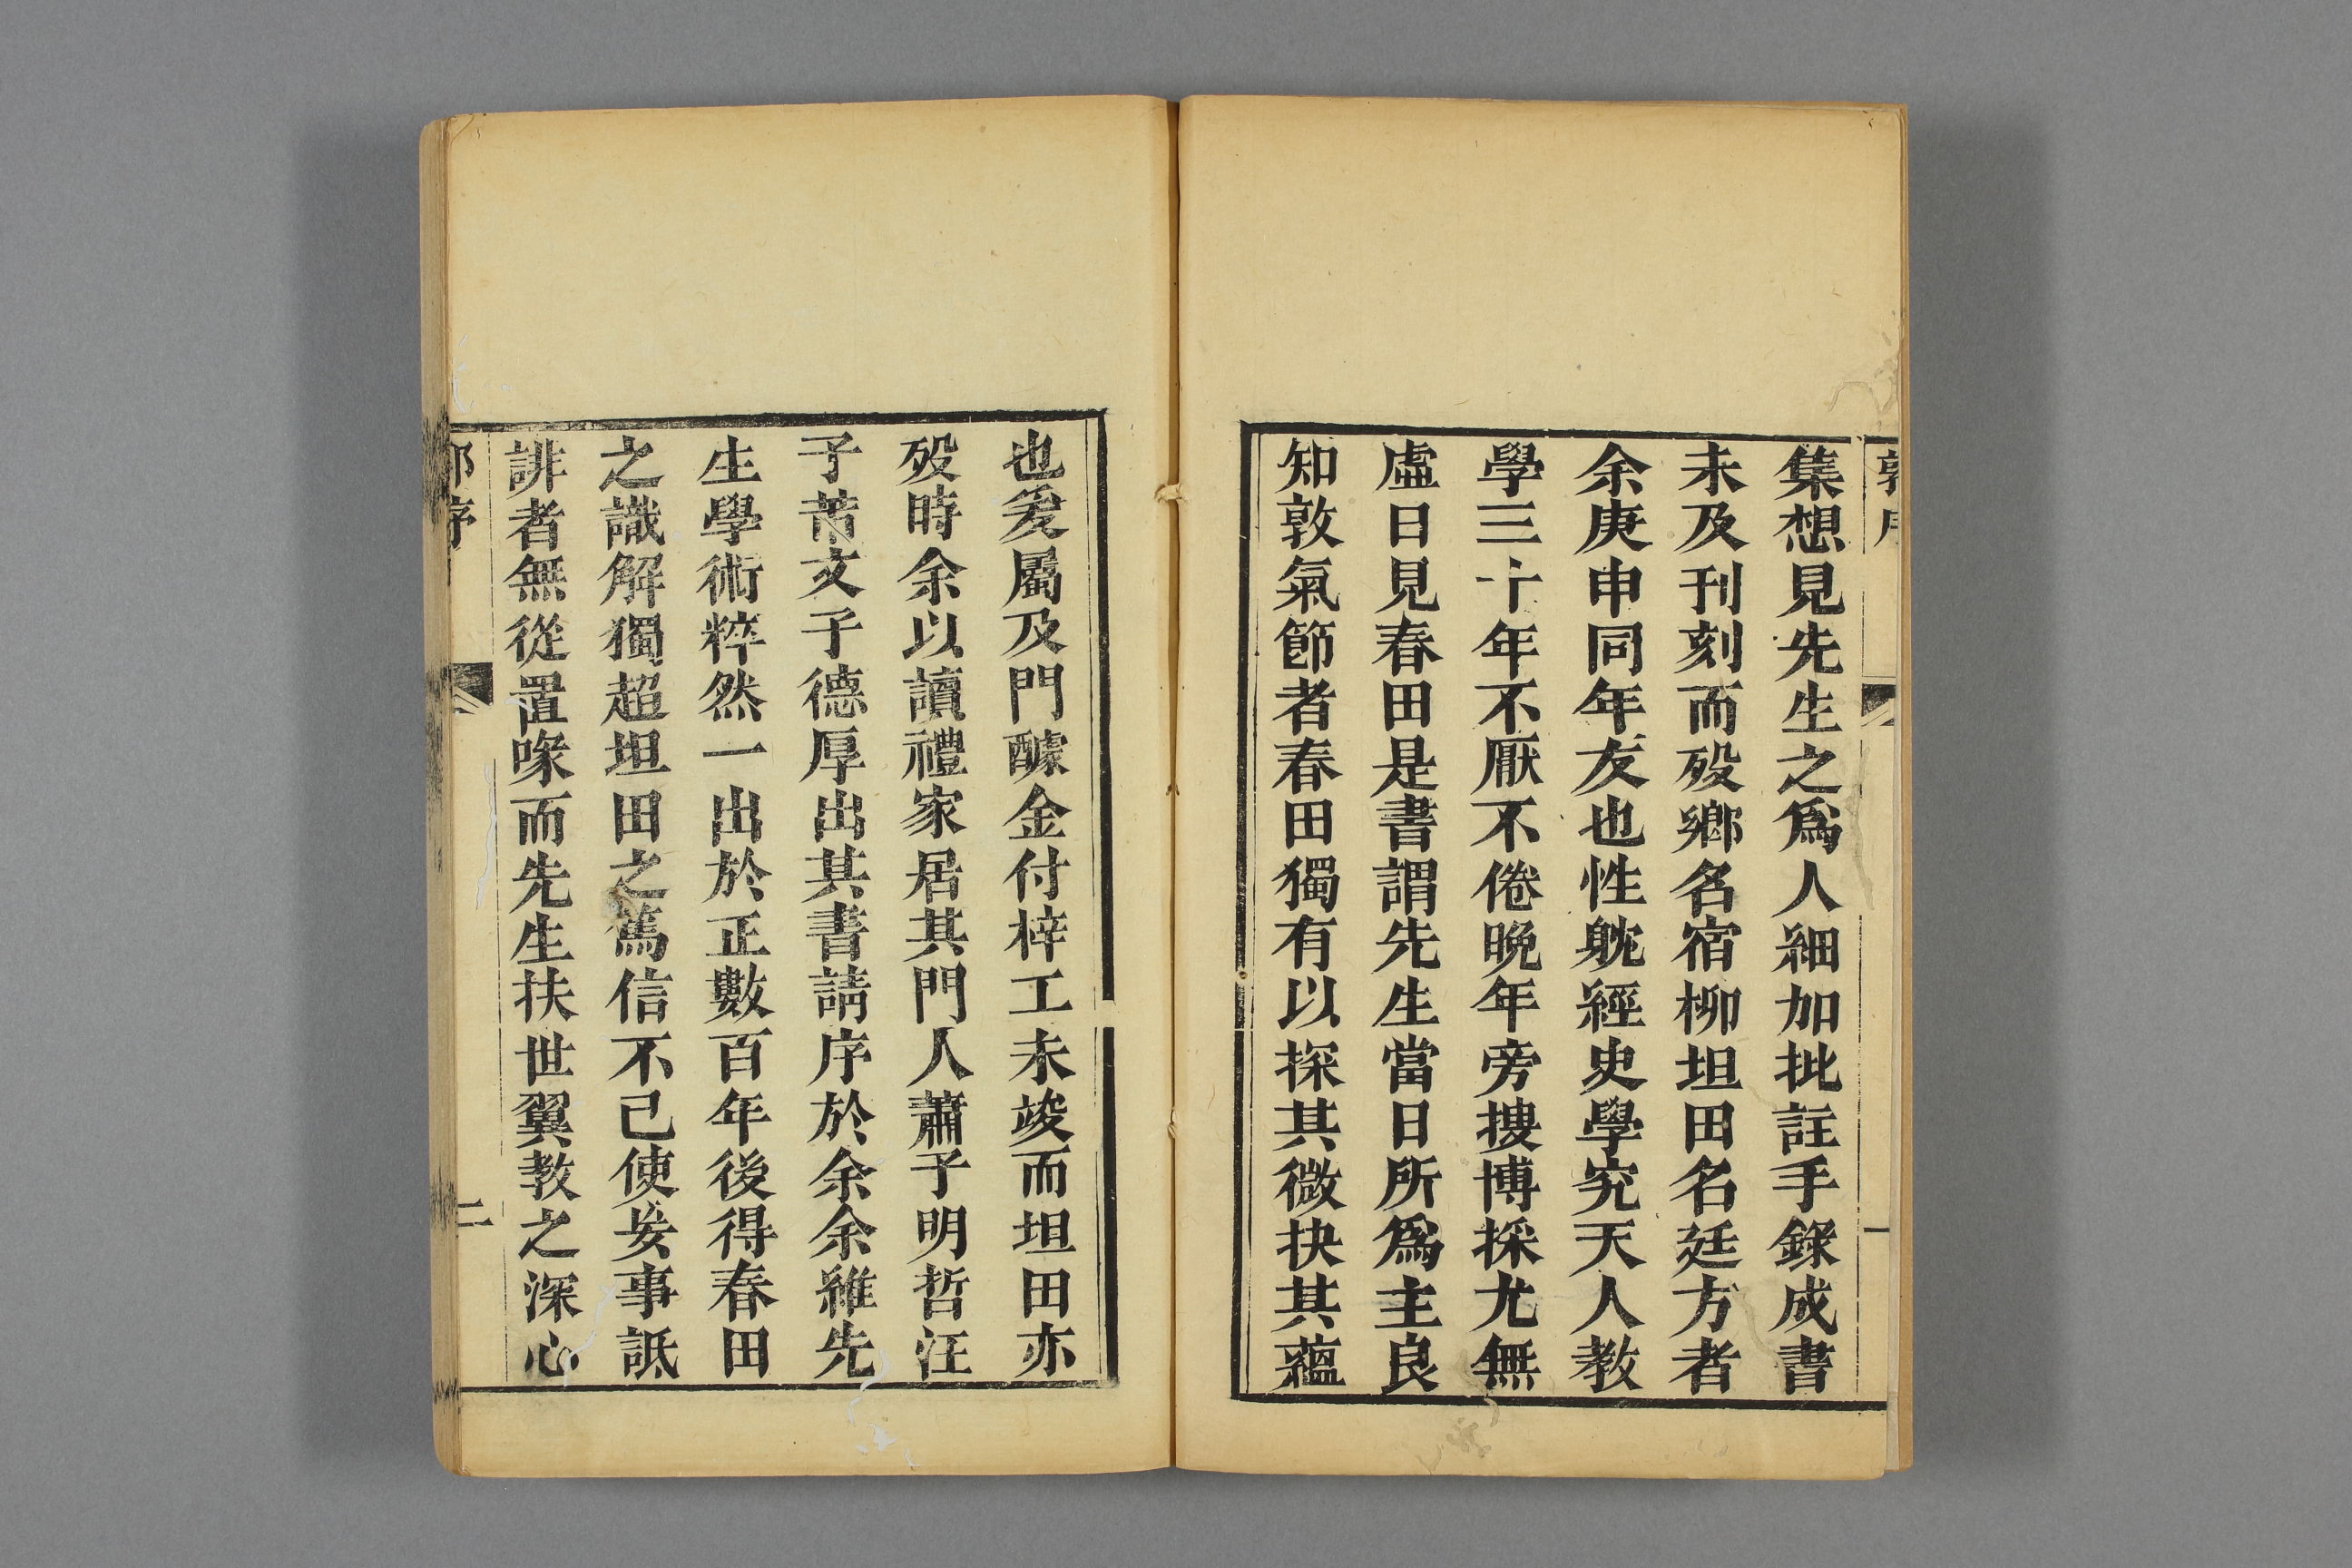 集想見先生之爲人細加批註手錄成書
未及刊刻而歿鄉名宿柳坦田名廷方者
余庚申同年友也性躭經史學究天人教
學三十年不厭不倦晚年旁搜博採尤無
虛日見春田是書謂先生當日所爲主良
知敦氣節者春田獨有以探其微抉其蘊
一
也爰屬及門醵金付梓工未竣而坦田亦
歿時余以讀禮家居其門人蕭子明哲汪
子芾文子德厚出其書請序於余余維先
生學術粹然一出於正數百年後得春田
之識解獨超坦田之篤信不已使妄事詆
誹者無從置喙而先生扶世翼教之深心
序
二